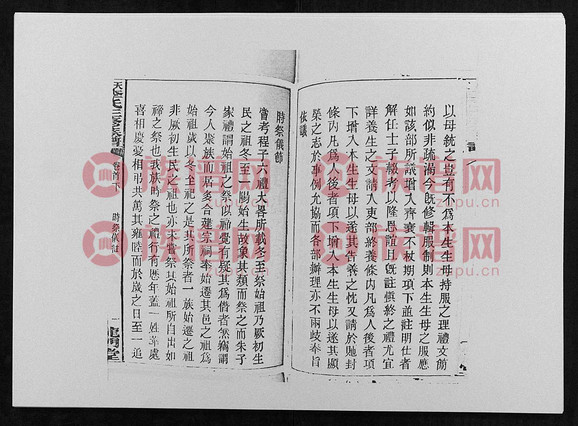 以母統之豈有不爲本生生母持服之理禮文簡
約似非疏漏今旣修輯服制則本生生母之服應
如該部所議增入齊衰不杖期項下並註明仕者
解任士子輟考以隆恩誼且旣註愼終之禮尤宜
詳養生之文請入吏部終養條內凡爲人後者項
下增入本生生母以遂其告養之忱又請於貤封
條內凡爲人後者項下增入本生生母以遂其顯
榮之志於事例尤協而各部辦理亦不兩歧奉旨
依議
時祭儀節
嘗考程子六禮大畧所載冬至祭始祖乃厥初生
民之祖冬至一陽始生故象其類而祭之而朱子
家禮謂始祖之祭似禘覺有疑其爲僭者然竊謂
今人聚族而居多合建宗祠奉始遷其邑之祖爲
始祖歲以冬至祀之是其所祭者一族始遷之祖
非厥初生民之祖也亦未嘗祭其始祖所自出如
禘之祭也我族時祭之禮行有歷年蓋一姓萃處
喜相慶戚相弔共萬其雍睦而於歲之日至一追
天
三修族譜
卷首下
時祭儀節
堂